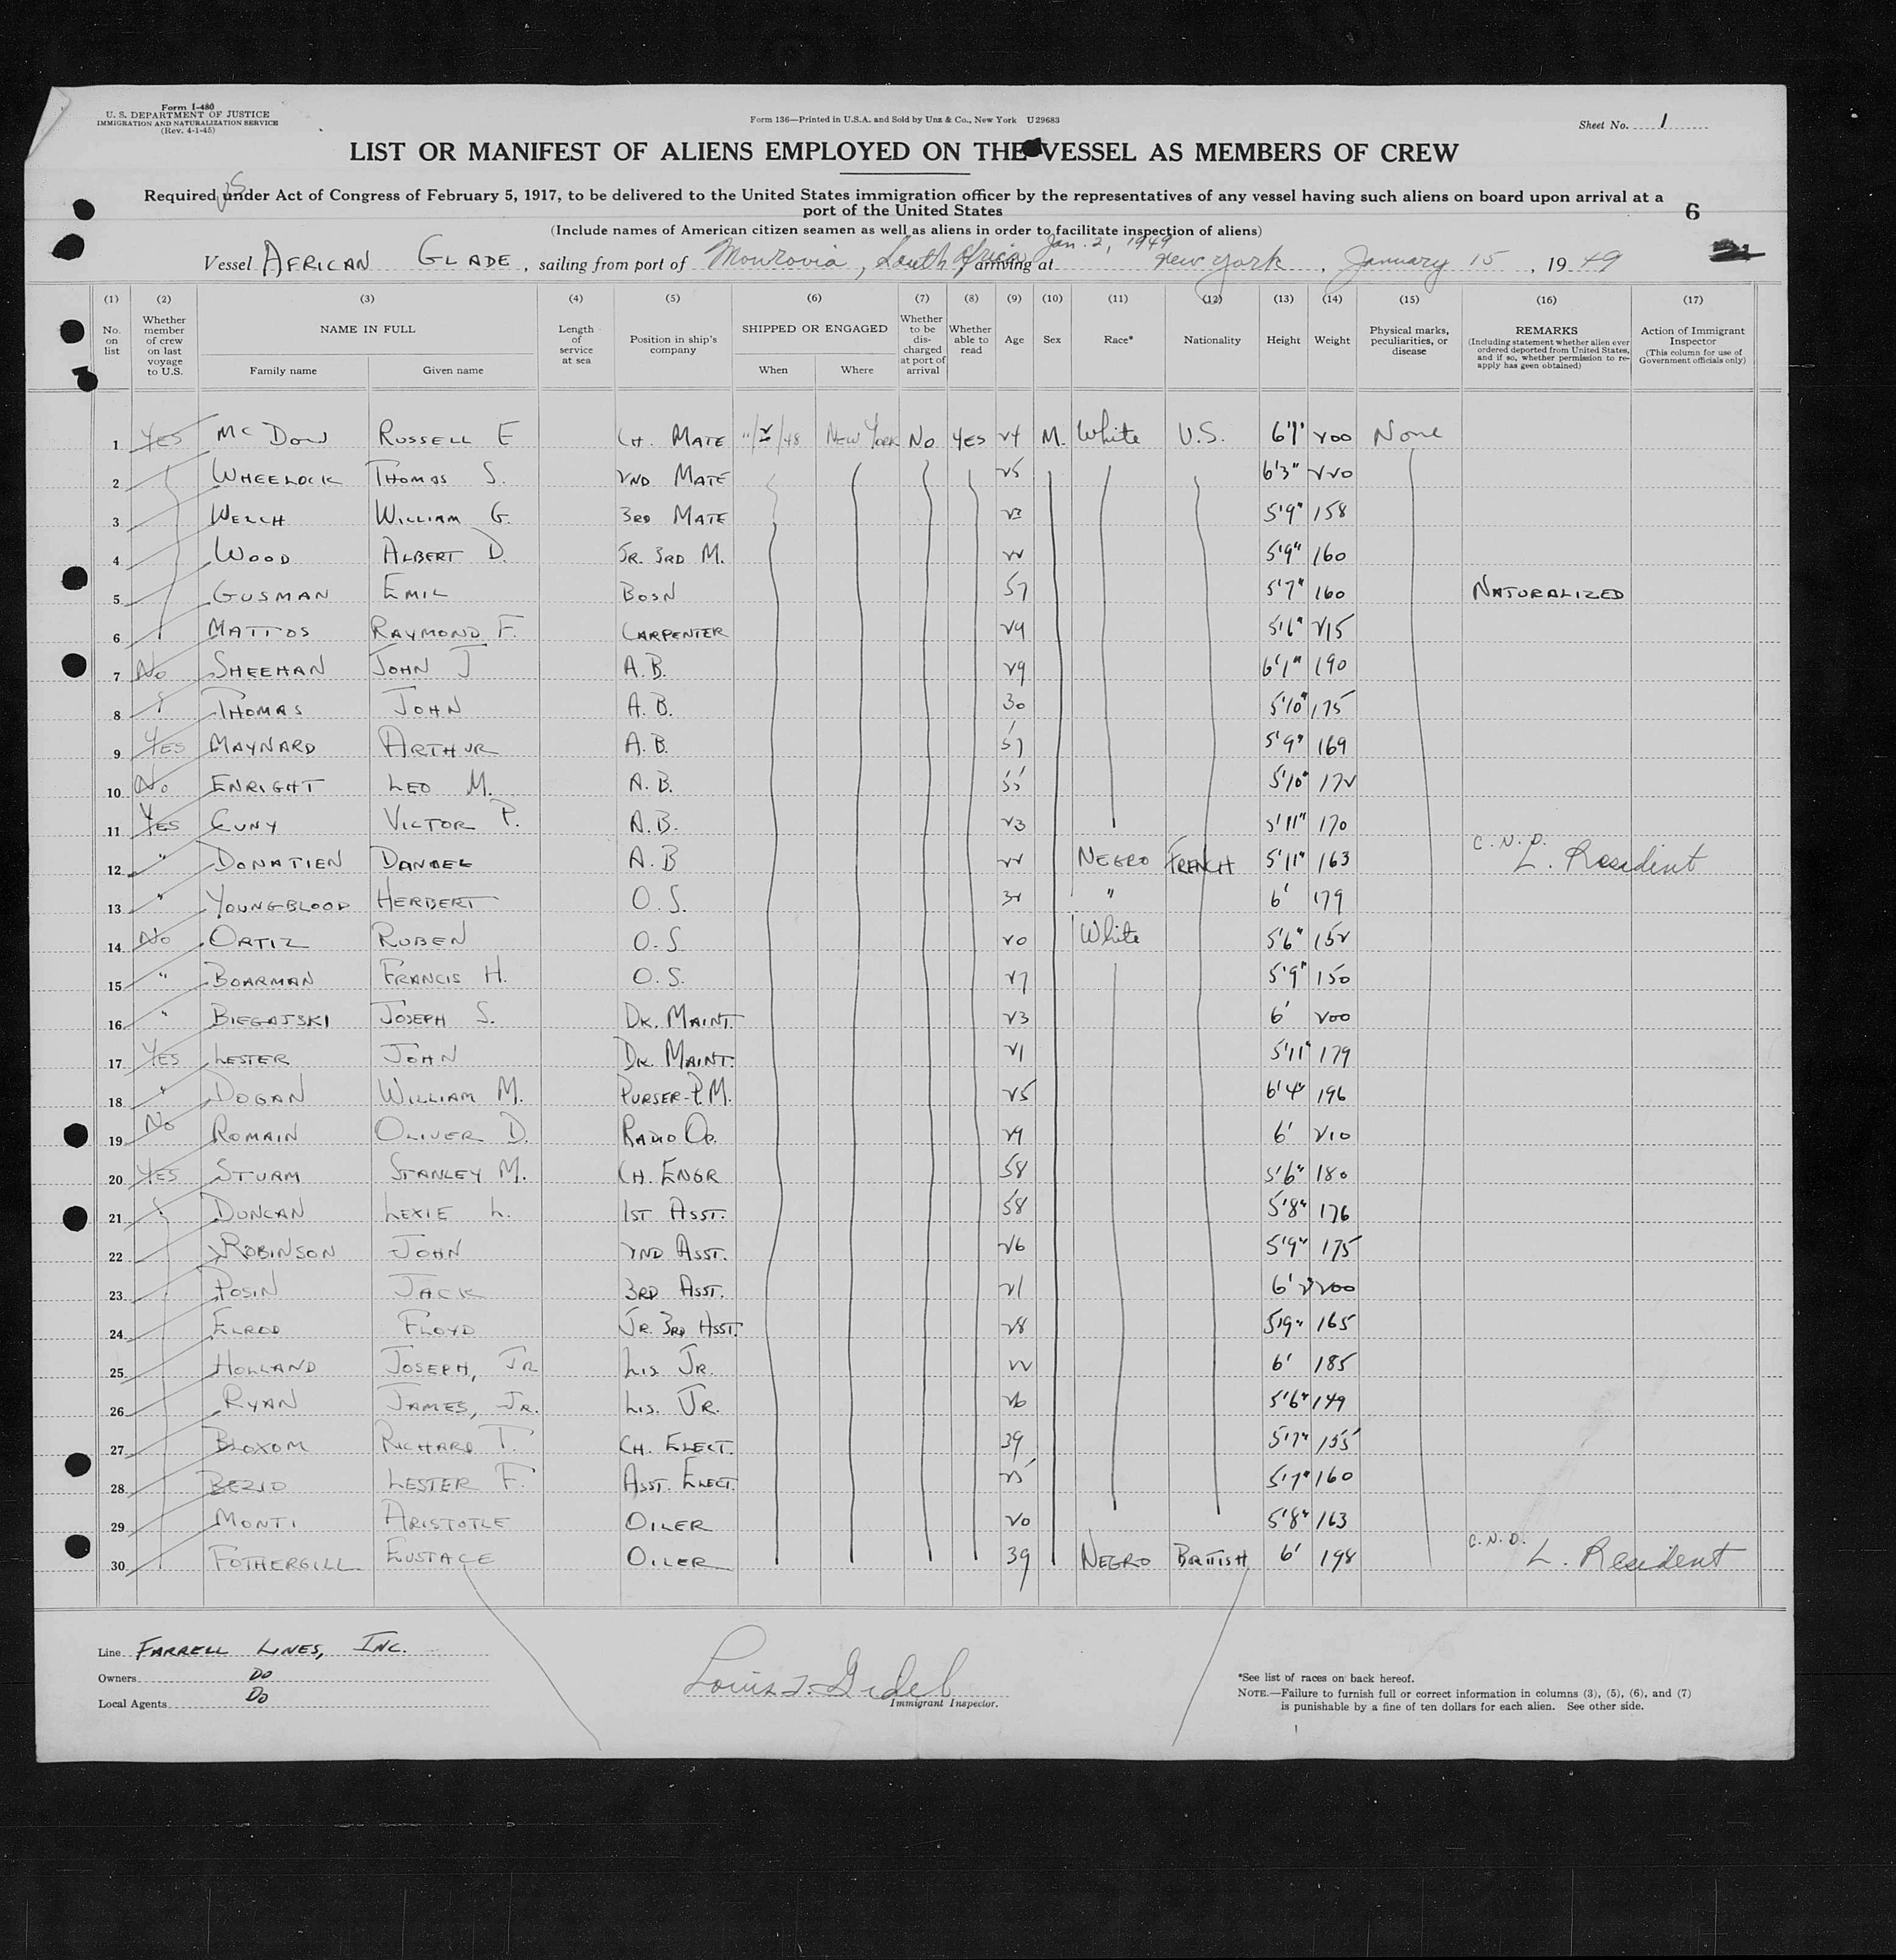 Form I-480
U. S. DEPARTMENT OF JUSTICE
IMMIGRATION AND NATURALIZATION SERVICE
(Rev. 4-1-45)
Form 136—Printed in U.S.A. and Sold by Unz & Co., New York U29683
Sheet No. 1
LIST OR MANIFEST OF ALIENS EMPLOYED ON THE VESSEL AS MEMBERS OF CREW
Required under Act of Congress of February 5, 1917, to be delivered to the United States immigration officer by the representatives of any vessel having such aliens on board upon arrival at a
port of the United States
6
(Include names of American citizen seamen as well as aliens in order to facilitate inspection of aliens)
Jan. 2, 1949
Vessel AFRICAN GLADE, sailing from port of Monrovia, South Africa arriving at New York, January 15, 1949
(1) (2) (3) (4) (5) (6) (7) (8) (9) (10) (11) (12) (13) (14) (15) (16) (17)
No. on list
Whether member of crew on last voyage to U.S.
NAME IN FULL
Family name Given name
Length of service at sea
Position in ship's company
SHIPPED OR ENGAGED
When Where
Whether to be discharged at port of arrival
Whether able to read
Age
Sex
Race*
Nationality
Height
Weight
Physical marks, peculiarities, or disease
REMARKS
(Including statement whether alien ever ordered deported from United States, and if so, whether permission to re-apply has geen obtained)
Action of Immigrant Inspector
(This column for use of Government officials only)
1 YES McDOW RUSSELL E CH. MATE 11/2/48 NEW YORK NO YES 24 M. White U.S. 6'1" 200 None
2 WHEELOCK THOMAS S. 2ND MATE 25 6'3" 220
3 WELCH WILLIAM G. 3RD MATE 23 5'9" 158
4 WOOD ALBERT D. JR. 3RD M. 22 5'9" 160
5 GUSMAN EMIL BOSN 57 5'7" 160 NATURALIZED
6 MATTOS RAYMOND F. CARPENTER 24 5'6" 215
7 NO SHEEHAN JOHN J A.B. 29 6'1" 190
8 THOMAS JOHN A.B. 30 5'10" 175
9 YES MAYNARD ARTHUR A.B. 57 5'9" 169
10 NO ENRIGHT LEO M. A.B. 55 5'10" 172
11 YES CUNY VICTOR P. A.B. 23 5'11" 170
12 " DONATIEN DANIEL A.B 22 NEGRO FRENCH 5'11" 163 C.N.D. L. Resident
13 " YOUNGBLOOD HERBERT O.S. 32 " 6' 179
14 NO ORTIZ RUBEN O.S 20 White 5'6" 152
15 " BOARMAN FRANCIS H. O.S. 27 5'9" 150
16 " BIEGAJSKI JOSEPH S. DK. MAINT. 23 6' 200
17 YES LESTER JOHN DK. MAINT. 21 5'11" 179
18 " DOGAN WILLIAM M. PURSER-P.M. 25 6'4" 196
19 NO ROMAIN OLIVER D. RADIO OP. 29 6' 210
20 YES STURM STANLEY M. CH. ENGR 58 5'6" 180
21 " DUNCAN LEXIE L. 1ST ASST. 58 5'8" 176
22 ROBINSON JOHN 2ND ASST. 26 5'9" 175
23 POSIN JACK 3RD ASST. 21 6'2" 200
24 ELROD FLOYD JR. 3RD ASST. 28 5'9" 165
25 HOLLAND JOSEPH, JR LIS JR. 22 6' 185
26 RYAN JAMES, JR. LIS. JR. 26 5'6" 149
27 BLOXOM RICHARD T. CH. ELECT. 39 5'7" 155
28 BEZIO LESTER F. ASST. ELECT. 25 5'7" 160
29 MONTI ARISTOTLE OILER 20 5'8" 163
30 FOTHERGILL EUSTACE OILER 39 NEGRO BRITISH 6' 198 C.N.D. L. Resident
Line FARRELL LINES, INC.
Owners DO
Local Agents DO
Immigrant Inspector.
*See list of races on back hereof.
NOTE.—Failure to furnish full or correct information in columns (3), (5), (6), and (7)
is punishable by a fine of ten dollars for each alien. See other side.